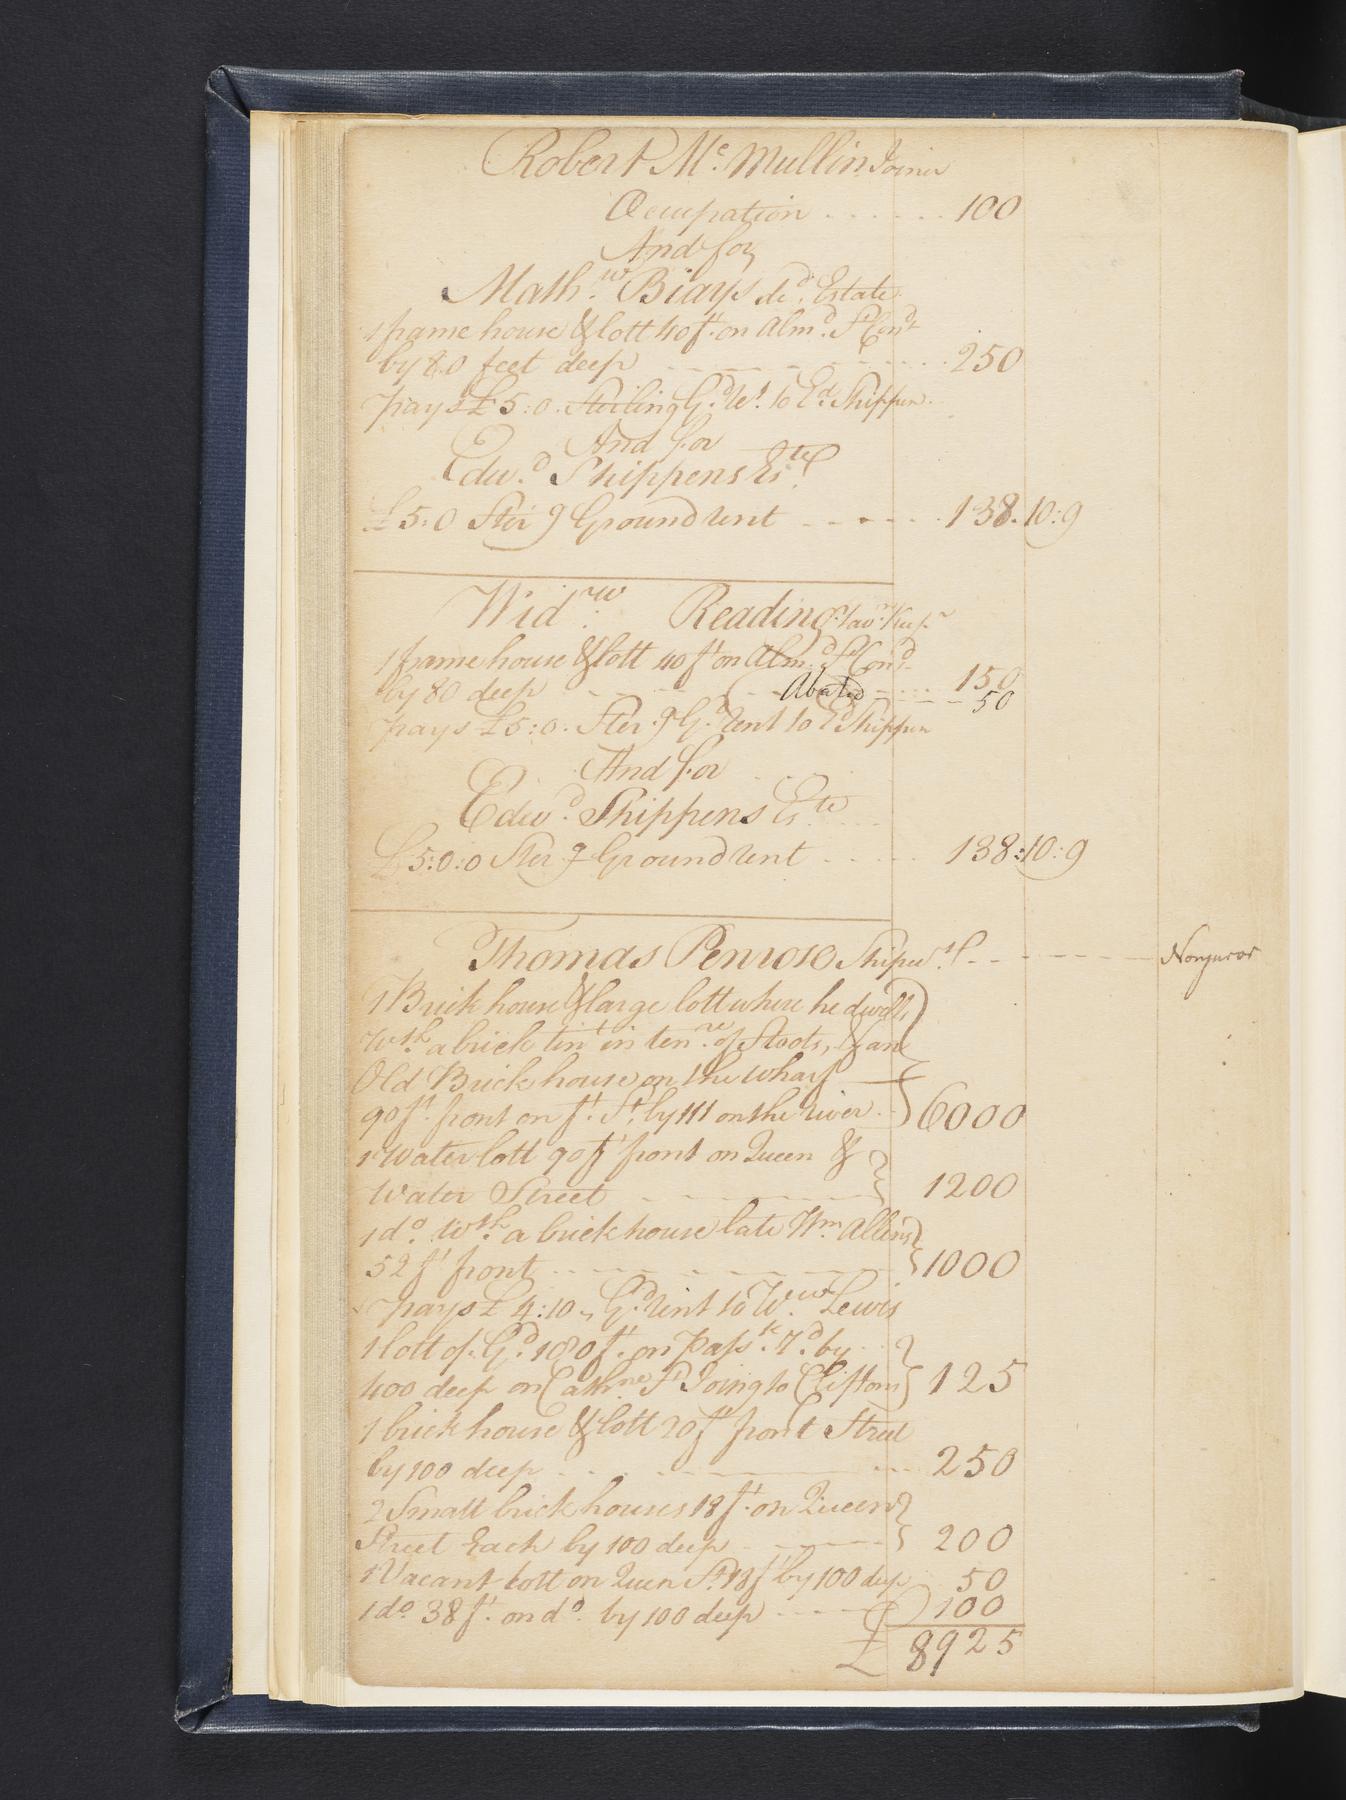 Robert Mc. Mullin Joiner
Occupation ...... 100
And for
Mathw. Biays decd. Estate
1 frame house & lott 40 ft. on Almd. St. Cond.
by 80 feet deep 250
pays £5:0. Sterling Gd. Rt. to Ed. Shippen
And for
Edwd. Shippens Este.
£5:0 Ster g Ground rent 138.10:9
Widw. Reading Tavn. Keepr
1 frame house & lott 40 ft on Almd. St. Cond.
by 80 deep 150
Abated 50
pays £5:0. Ster. g Gd. Rent to Ed Shippen
And for
Edwd. Shippens Este
£5:0:0 Ster g Ground rent 138:10:9
Thomas Penrose Shipwt. Nonjuror
1 Brick house & large lott where he dwells
Wth. a brick tent in tenre. of Stoots, & an
Old Brick house on the wharf
90 ft. front on ft. St. by 111 on the river 6000
1 Water lott 90 ft front on Queen &
Water Street 1200
1 do. wth. a brick house late Wm. Allens
52 ft front 1000
pays £4:10 Gd. rent to Ww. Lewis
1 lott of Gd. 180 ft. on Passk. Rd. by
400 deep on Cathne St. Joing to Cliftons 125
1 brick house & lott 20 ft front Street
by 100 deep 250
2 Small brick houses 18 ft. on Queen
Street Each by 100 deep 200
1 Vacant lott on Queen St. 18 ft by 100 deep 50
1 do. 38 ft. on do. by 100 deep 100
£ 8925